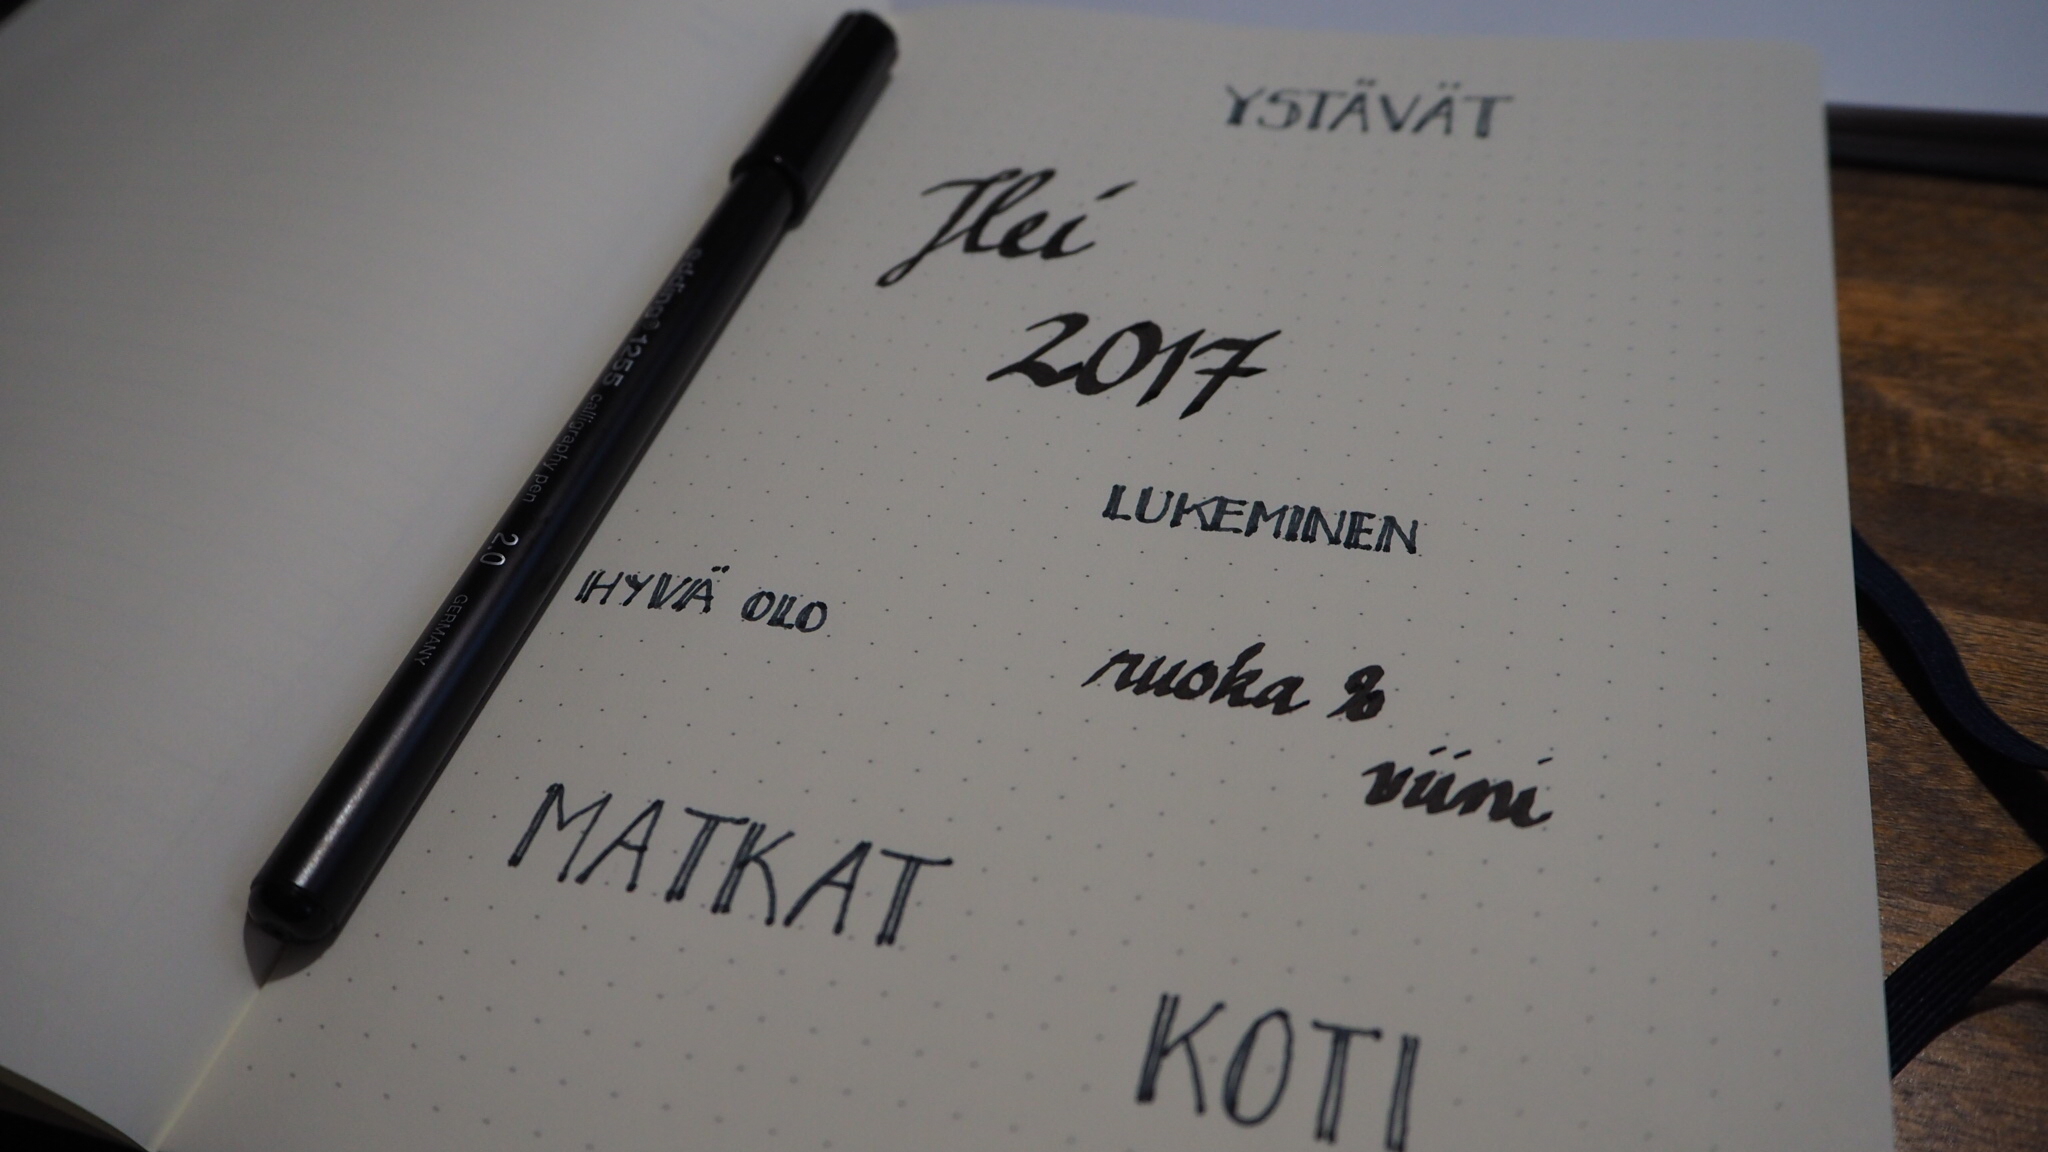 YSTÄVÄT
Hei
2017
LUKEMINEN
HYVÄ OLO
ruoka &
viini
MATKAT
KOTI
edding® 1255 calligraphy pen 2.0 GERMANY